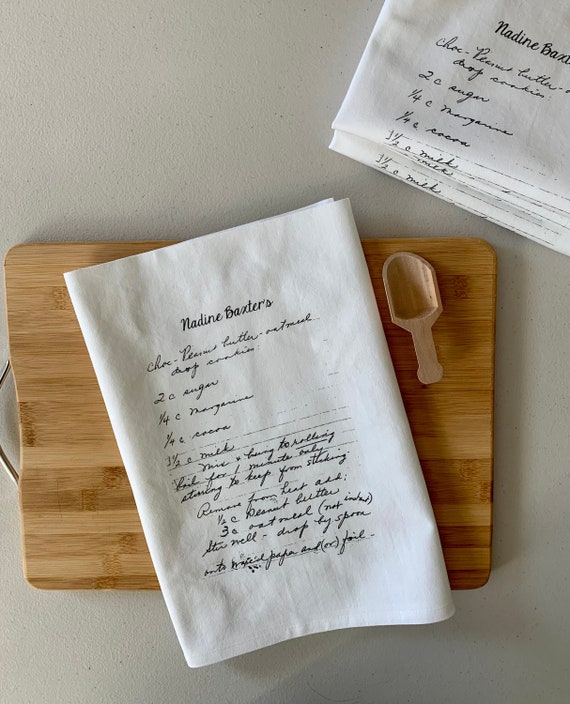 Nadine Baxter's
choc-Peanut butter-oatmeal
drop cookies:
2 c sugar
1/4 c margarine
1/4 c cocoa
3 1/2 c milk
Mix & bring to rolling
boil for 1 minute only
stirring to keep from sticking
Remove from heat add:
1/2 c Peanut butter
3 c oatmeal (not instant)
Stir well - drop by spoon
onto waxed paper and(or) foil -
Nadine Baxter's
choc-Peanut butter-
drop cookies:
2 c sugar
1/4 c margarine
1/4 c cocoa
3 1/2 c milk
milk
3 1/2 c milk